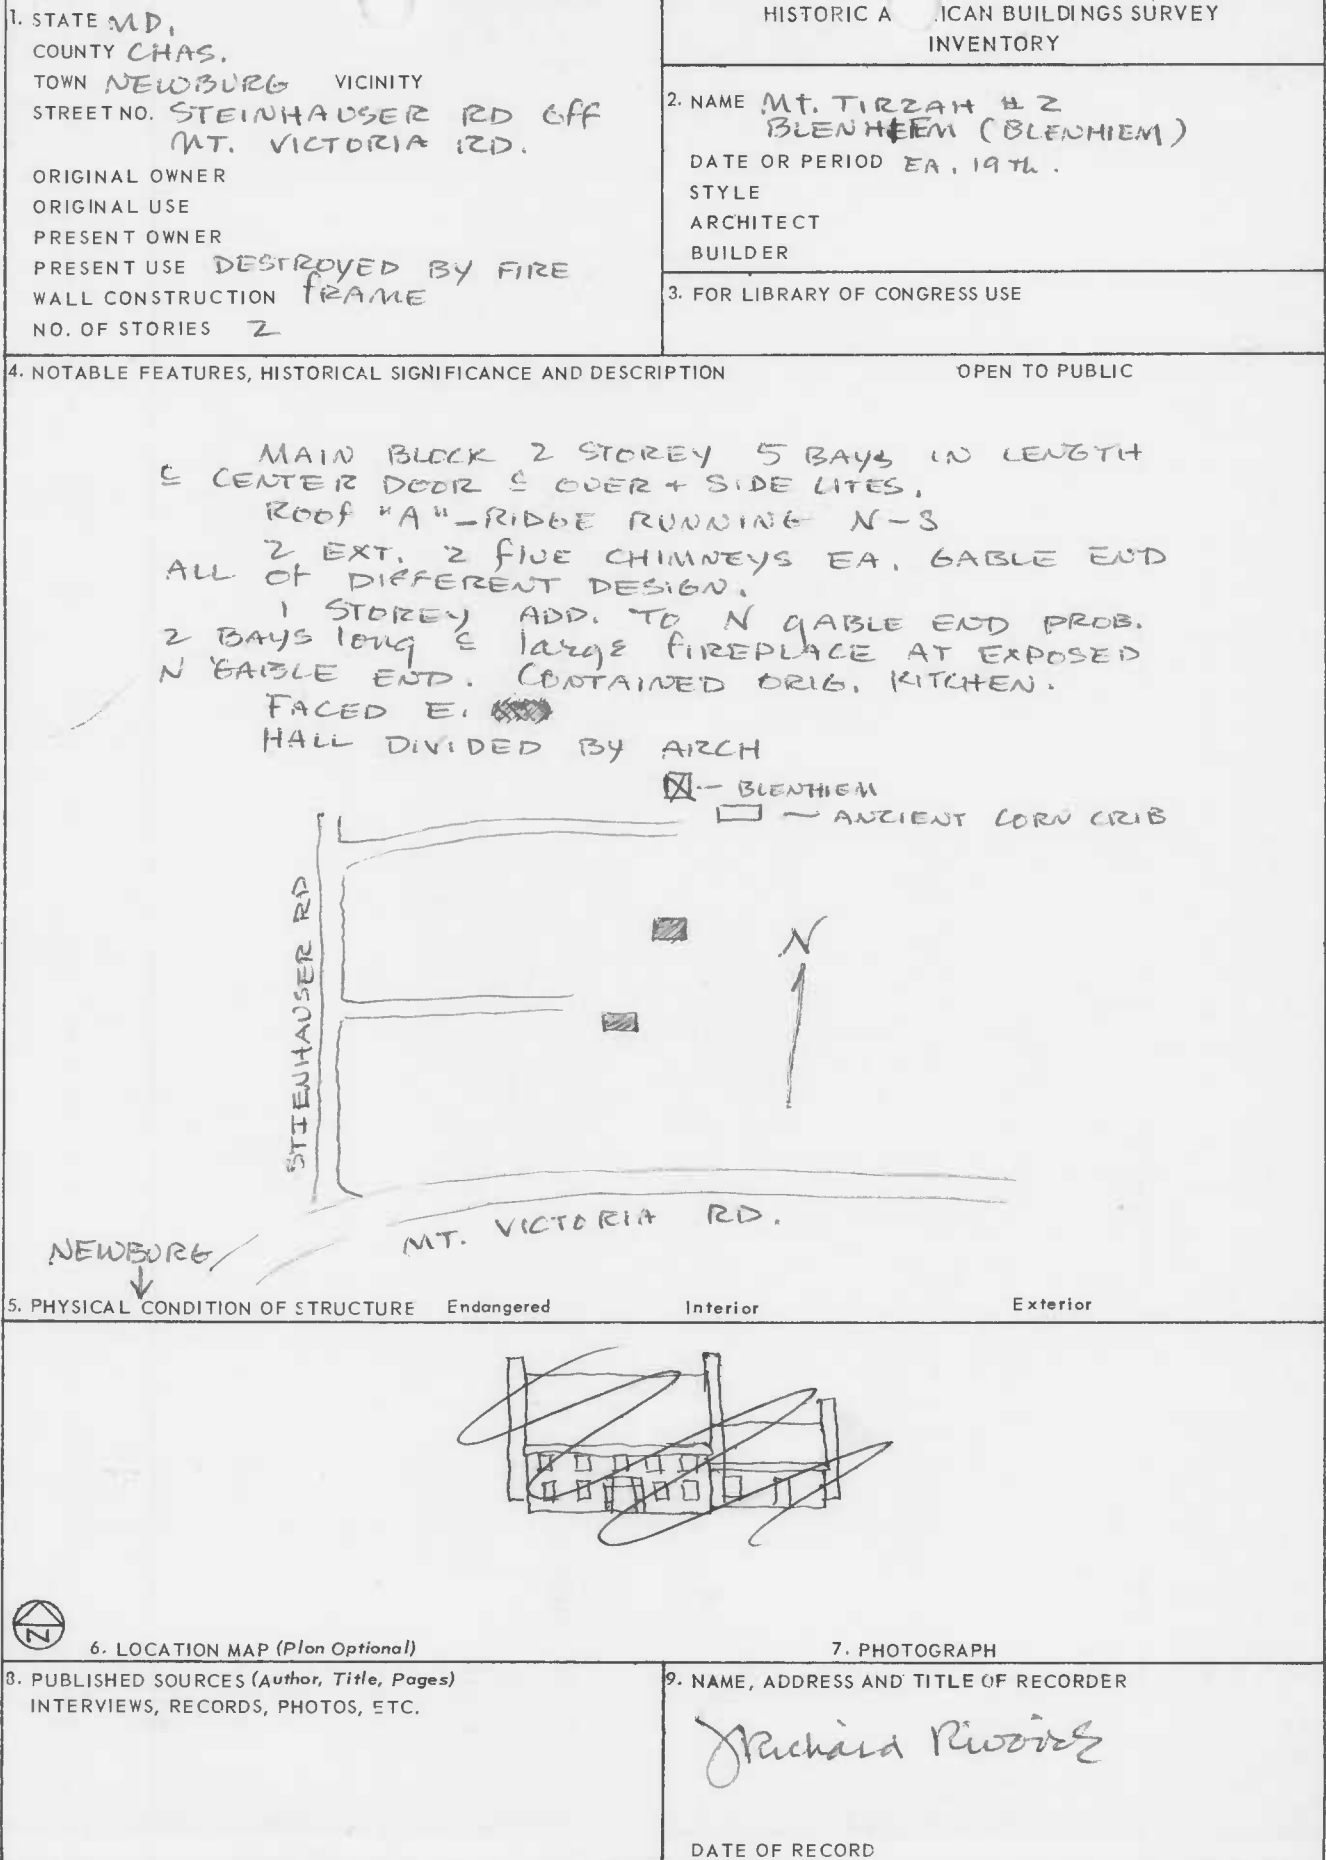 1. STATE MD.
COUNTY CHAS.
TOWN NEWBURG VICINITY
STREET NO. STEINHAUSER RD Off
MT. VICTORIA RD.
ORIGINAL OWNER
ORIGINAL USE
PRESENT OWNER
PRESENT USE DESTROYED BY FIRE
WALL CONSTRUCTION FRAME
NO. OF STORIES 2
HISTORIC A ICAN BUILDINGS SURVEY
INVENTORY
2. NAME Mt. TIRZAH # 2
BLENHEEM (BLENHIEM)
DATE OR PERIOD EA. 19th.
STYLE
ARCHITECT
BUILDER
3. FOR LIBRARY OF CONGRESS USE
4. NOTABLE FEATURES, HISTORICAL SIGNIFICANCE AND DESCRIPTION OPEN TO PUBLIC
MAIN BLOCK 2 STOREY 5 BAYS IN LENGTH
c̄ CENTER DOOR c̄ OVER + SIDE LITES.
ROOF "A" - RIDGE RUNNING N-S
2 EXT. 2 FLUE CHIMNEYS EA. GABLE END
ALL OF DIFFERENT DESIGN.
1 STOREY ADD. TO N GABLE END PROB.
2 BAYS long c̄ large FIREPLACE AT EXPOSED
N GABLE END. CONTAINED ORIG. KITCHEN.
FACED E.
HALL DIVIDED BY ARCH
- BLENHIEM
- ANCIENT CORN CRIB
STIENHAUSER RD
N
MT. VICTORIA RD.
NEWBURG
5. PHYSICAL CONDITION OF STRUCTURE Endangered Interior Exterior
N
6. LOCATION MAP (Plan Optional)
7. PHOTOGRAPH
8. PUBLISHED SOURCES (Author, Title, Pages)
INTERVIEWS, RECORDS, PHOTOS, ETC.
9. NAME, ADDRESS AND TITLE OF RECORDER
J Richard Rivoire
DATE OF RECORD